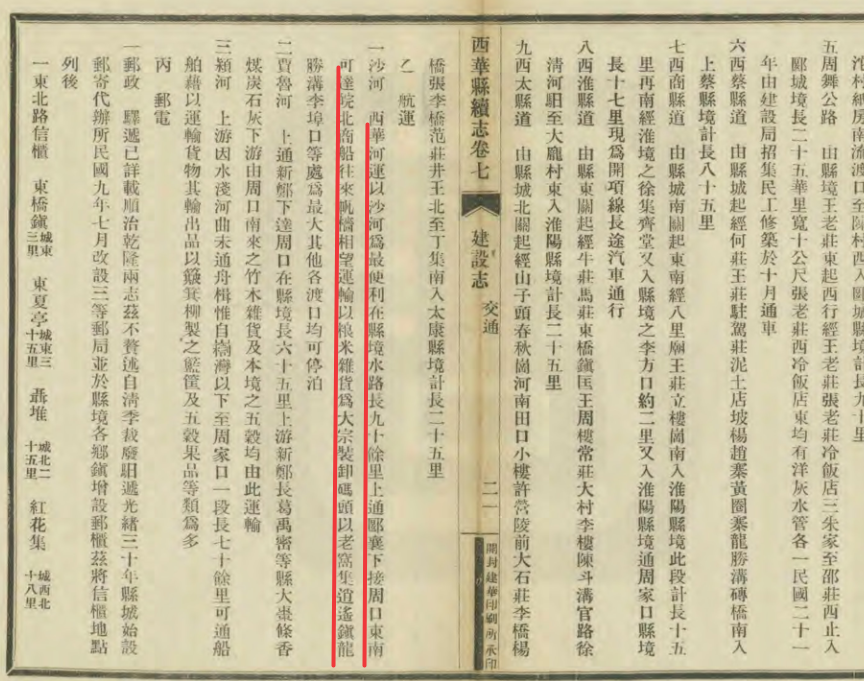 沱村經房南流渡口至陳村西入郾城縣境計長九十里
五周舞公路　由縣境王老莊東起西行經王老莊張老莊冷飯店三朱家至邵莊西止入
郾城境長二十五華里寬十公尺張老莊西冷飯店東均有洋灰水管各一民國二十一
年由建設局招集民工修築於十月通車
六西蔡縣道　由縣城起經何莊王莊駐駕莊泥土店坡楊趙寨黃囤寨龍勝溝磚橋南入
上蔡縣境計長八十五里
七西商縣道　由縣城南關起東南經八里廟王莊立樓崗南入淮陽縣境此段計長十五
里再南經淮境之徐集齊堂又入縣境之李方口約二里又入淮陽縣境通周家口縣境
長十七里現爲開項線長途汽車通行
八西淮縣道　由縣東關起經牛莊馬莊東橋鎮匡王周樓常莊大村李樓陳斗溝官路徐
清河駔至大龐村東入淮陽縣境計長二十五里
九西太縣道　由縣城北關起經山子頭春秋崗河南田口小樓許營陵前大石莊李橋楊
西華縣續志卷七　建設志　交通　二一　開封建華印刷所承印
橋張李橋范莊井王北至丁集南入太康縣境計長二十五里
乙　航運
一沙河　西華河運以沙河爲最便利在縣境水路長九十餘里上通郾襄下接周口東南
可達皖北商船往來帆檣相望運輸以粮米雜貨爲大宗裝卸碼頭以老窩集逍遙鎮龍
勝溝李埠口等處爲最大其他各渡口均可停泊
二賈魯河　上通新鄭下達周口在縣境長六十五里上游新鄭長葛禹密等縣大棗條香
煤炭石灰下游由周口南來之竹木雜貨及本境之五穀均由此運輸
三潁河　上游因水淺河曲未通舟楫惟自灣以下至周家口一段長七十餘里可通船
舶藉以運輸貨物其輸出品以簸箕柳製之籃筐及五穀果品等類爲多
丙　郵電
一郵政　驛遞已詳載順治乾隆兩志茲不贅述自清季裁廢駔遞光緒三十年縣城始設
郵寄代辦所民國九年七月改設三等郵局並於縣境各鄉鎮增設郵櫃茲將信櫃地點
列後
一東北路信櫃　東橋鎮城東三里　東夏亭城東三十五里　聶堆城北二十五里　紅花集城西北十八里